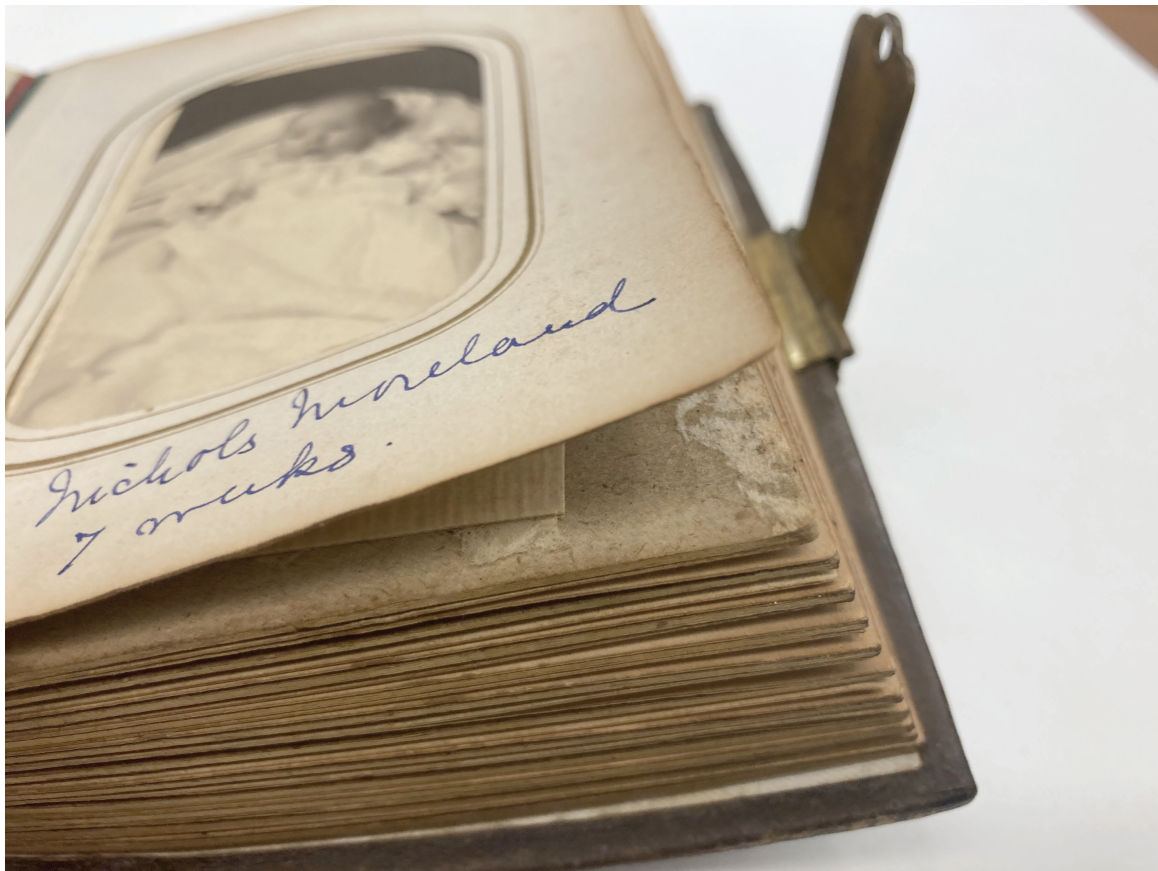 Nichols Moreland
7 weeks.